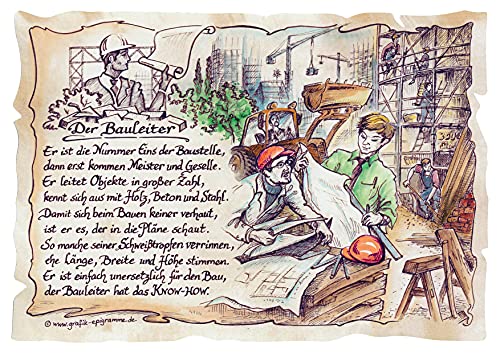 Der Bauleiter
Er ist die Nummer Eins der Baustelle,
dann erst kommen Meister und Geselle.
Er leitet Objekte in großer Zahl,
kennt sich aus mit Holz, Beton und Stahl.
Damit sich beim Bauen keiner verhaut,
ist er es, der in die Pläne schaut.
So manche seiner Schweißtropfen verrinnen,
ehe Länge, Breite und Höhe stimmen.
Er ist einfach unersetzlich für den Bau,
der Bauleiter hat das KNOW-HOW.
© www.grafik-epigramme.de